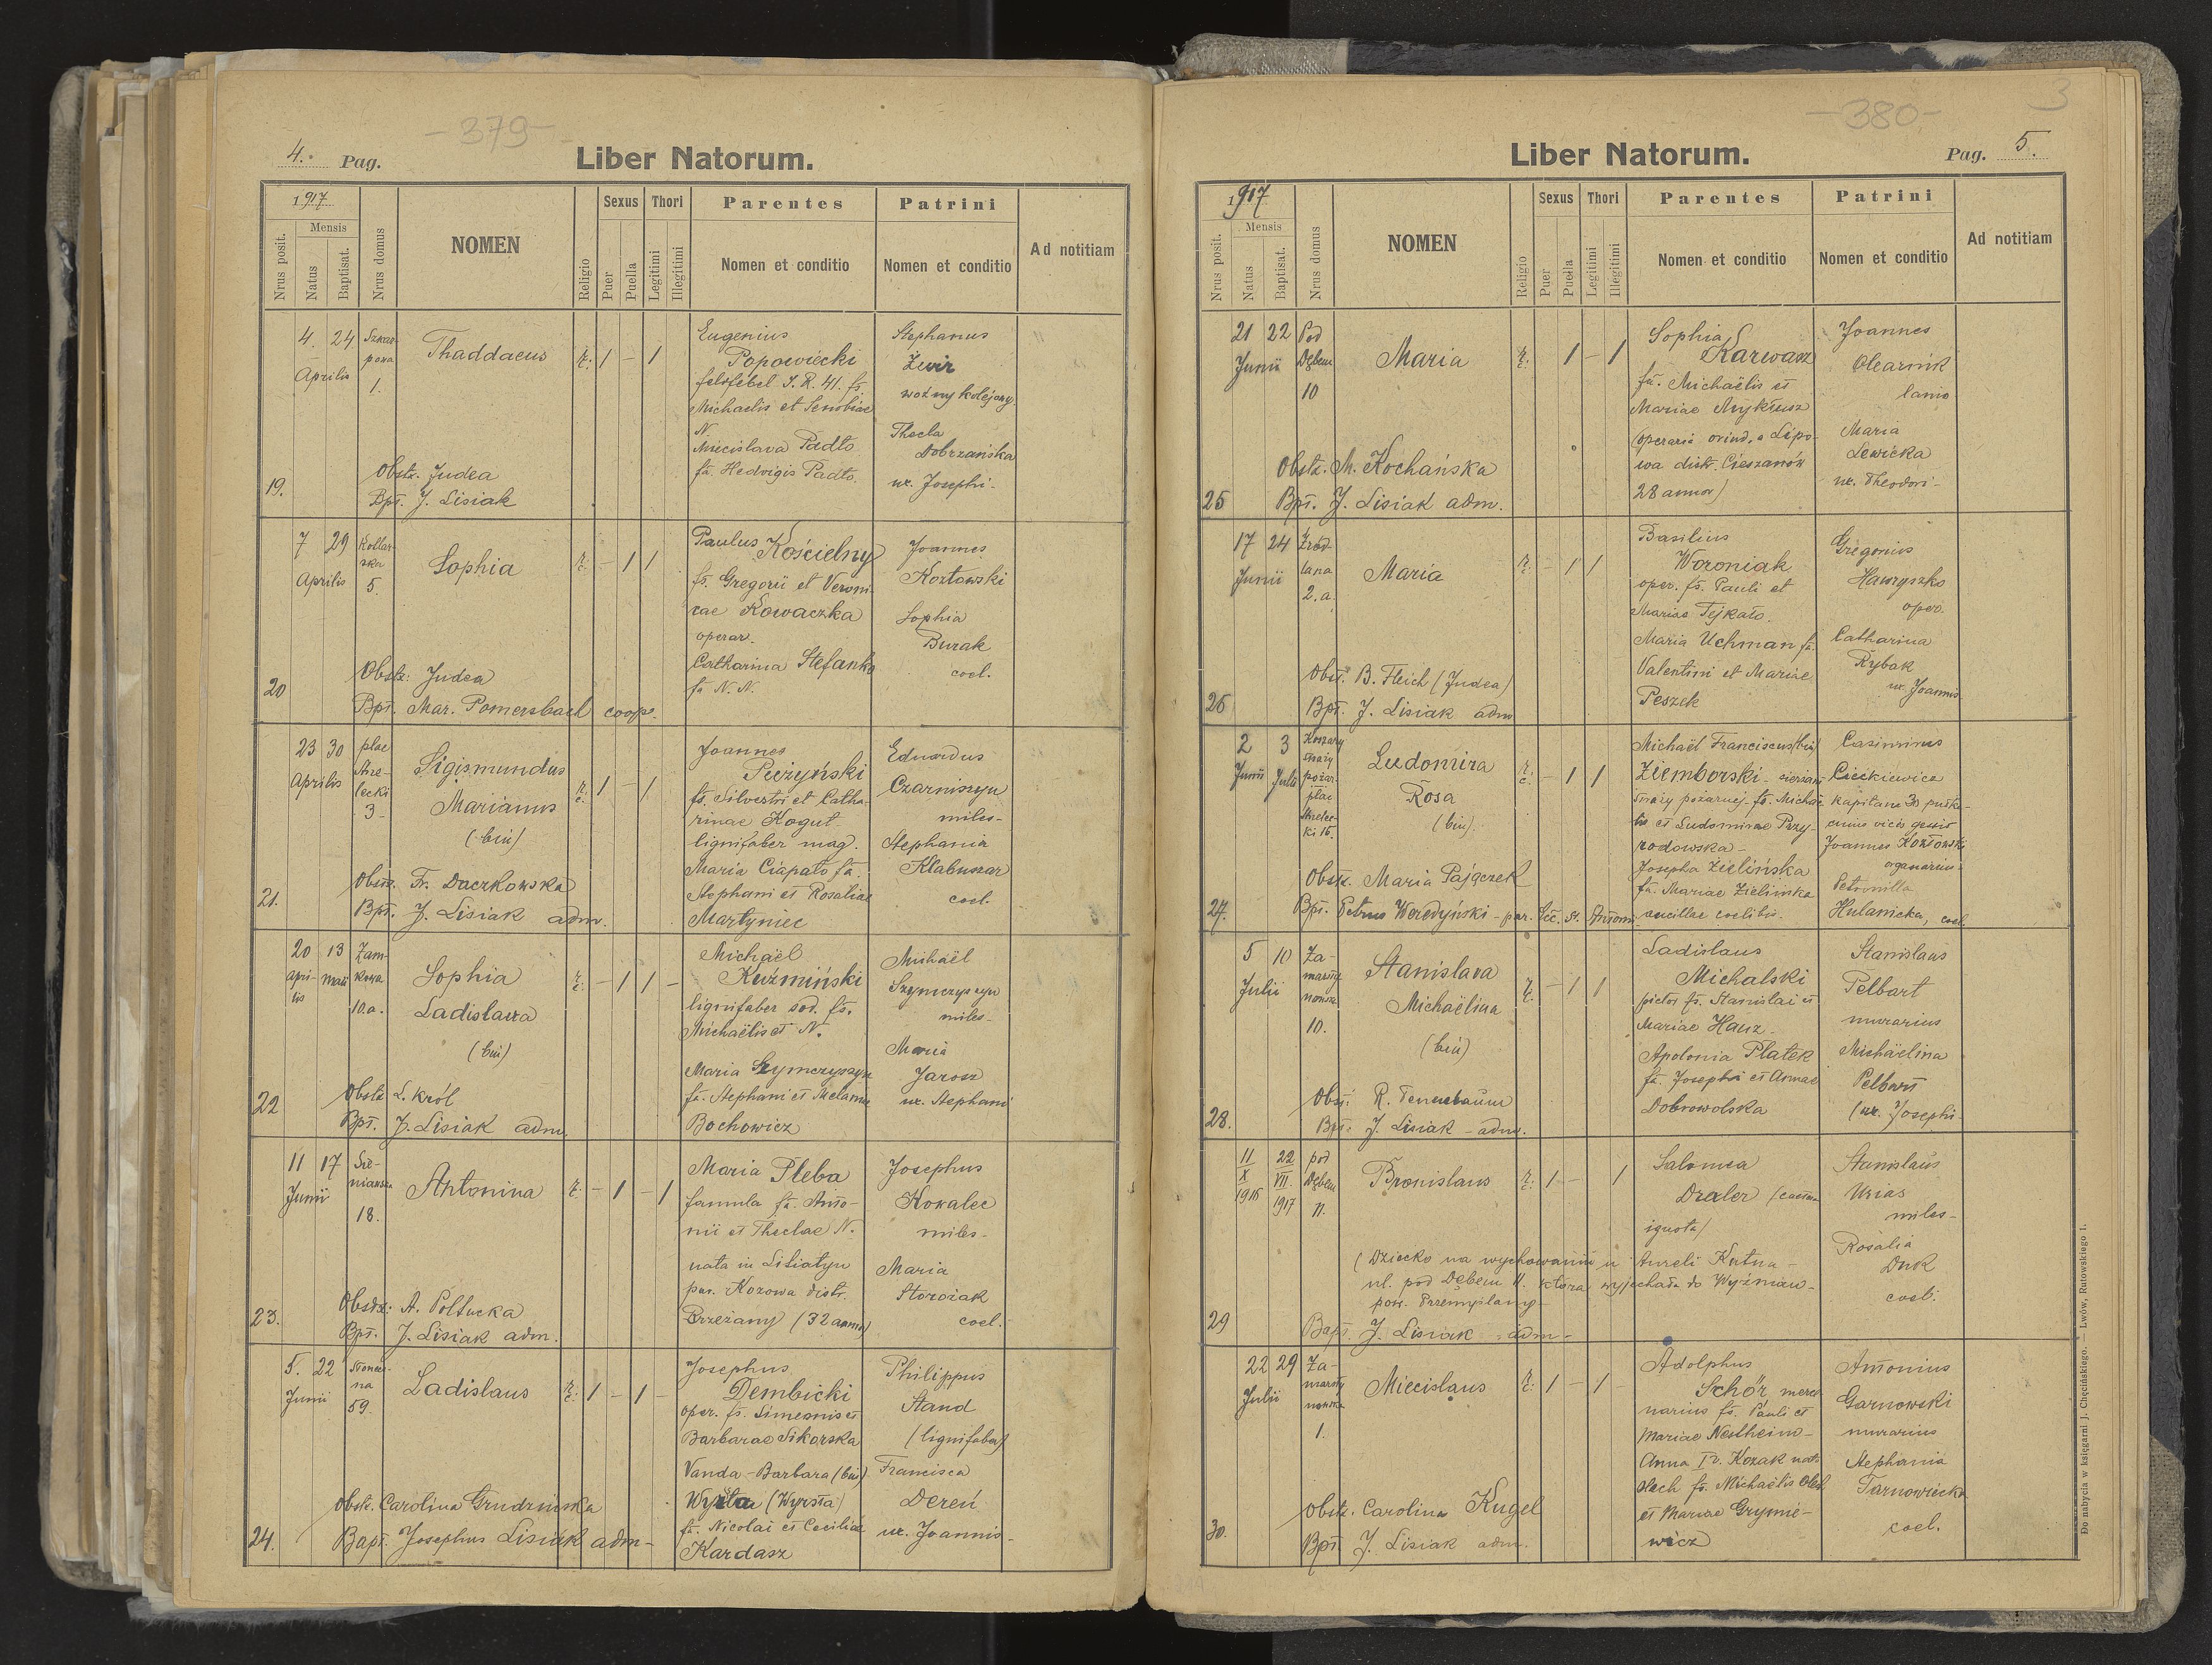 -379-
4. Pag.
Liber Natorum.
1917
Mensis
Nrus posit.
Natus
Baptisat.
Nrus domus
NOMEN
Religio
Sexus
Puer
Puella
Thori
Legitimi
Illegitimi
Parentes
Nomen et conditio
Patrini
Nomen et conditio
Ad notitiam
19.
4. 24
Aprilis
1.
Thaddaeus
Obstr. Judea
Bpt. J. Lisiak
Eugenius
Popowiecki
felsfebel I. R. 41. fs.
Michaelis et Senobiae
N.
Miecislava Padło
fa. Hedvigis Padło.
Stephanus
Żwir
woźny kolejowy.
Thecla
Dobrzańska
ux. Josephi-
20
7 29
Aprilis
Kotlar-
ska
5.
Sophia
Obstr: Judea
Bpt. Mar. Pomersbach coop.
Paulus Kościelny
fs. Gregorii et Veroni-
cae Kowaczka
operar.
Catharina Stefanko
fa N. N.
Joannes
Kozłowski
Sophia
Burak
coel.
21.
23 30
Aprilis
plac
Strze-
lecki
3-
Sigismundus
Marianus
(bin)
Obstr. Fr. Daczkowska
Bpt. J. Lisiak adm.
Joannes
Pieżyński
fs. Silvestri et Catha-
rinae Kogut
lignifaber mag.
Maria Ciapało fa.
Stephani et Rosaliae
Martyniec
Eduardus
Czarniszyn
miles-
Stephania
Klabuszar
coel.
22
20 13
apri-
lis
maii
Zam-
kowa
10.a.
Sophia
Ladislava
(bin)
Obstr. L. Król
Bpt. J. Lisiak adm.
Michaël
Kuźmiński
lignifaber sod. fs.
Michaëlis et N.
Maria Szymczyszyn
fa. Stephani et Melaniae
Bochowicz
Michaël
Szymczyszyn
miles-
Maria
Jarosz
ux. Stephani
23.
11 17
Junii
Sie-
niawska
18.
Antonina
Obstr: A. Połtucka
Bpt. J. Lisiak adm.
Maria Pleba
famula fa. Anto-
nii et Theclae N.
nata in Litiatyn
par. Kozowa distr.
Brzeżany (32 annor)
Josephus
Kowalec
miles-
Maria
Storożak
coel.
24.
5. 22
Junii
Słonecz-
na
59.
Ladislaus
Obstr. Carolina Grudzińska
Bapt. Josephus Lisiak adm-
Josephus
Dembicki
oper. fs. Simeonis et
Barbarae Sikorska
Vanda-Barbara (bin)
(Wyrsta)
fa. Nicolai et Ceciliae
Kardasz
Philippus
Stand
(lignifaber)
Francisca
Dereń
ux. Joannis-
-380-
3
Liber Natorum.
Pag. 5.
1917
Mensis
Nrus posit.
Natus
Baptisat.
Nrus domus
NOMEN
Religio
Sexus
Puer
Puella
Thori
Legitimi
Illegitimi
Parentes
Nomen et conditio
Patrini
Nomen et conditio
Ad notitiam
25
21 22
Junii
Pod
Dębem
10
Maria
Obstr. M. Kochańska
Bpt. J. Lisiak adm.
Sophia
Karwasz
fa. Michaëlis et
Mariae Mykłusz
(operaria oriund. a Lipo-
wa distr. Cieszanów
28 annor)
Joannes
Olearnik
lanio
Maria
Lewicka
ux. Theodori-
26
17 24
Junii
Źród-
lana
2.a.
Maria
Obst. B. Fleich (Judea)
Bpt. J. Lisiak adm
Basilius
Woroniak
oper. fs. Pauli et
Mariae Tejkało.
Maria Uchman fa.
Valentini et Mariae
Peszek
Gregorius
Hawryszko
oper.
Catharina
Rybak
ux. Joannis
27.
2 3
Junii Julii
Koszary
straży
pożar.
plac
Strzelec-
ki 16.
Ludomira
Rosa
(bin)
Obstr. Maria Pajączek
Bpt. Petrus Weredyński - par. Ecc. St. Antonii
Michaël Franciscus (bin)
Ziemborski - sierżant
straży pożarnej - fs. Michaë-
lis et Ludomirae Przy-
rodowska-
Josepha Zielińska
fa. Mariae Zielinska
ancillae coelibis.
Casimirus
Cićkiewicz
kapitan 30 pułk-
cuius vices gessit
Joannes Kozłowski
organarius
Petronilla
Hulanicka, coel.
28.
5 10
Julii
Za-
marsty-
nowska
10.
Stanislava
Michaëlina
(bin)
Obst: R. Tennebaum
Bpt. J. Lisiak - adm.
Ladislaus
Michalski
pictor fs. Stanislai et
Mariae Hauz-
Apolonia Platek
fa. Josephi et Annae
Dobrowolska
Stanislaus
Pelbart
murarius
Michäelina
Pelbart
(ux. Josephi-
29
11
X
1916
22
VII.
1917
pod
Dębem
11.
Bronislaus
Salomea
Drexler
ignota)
(Dziecko na wychowaniu u Aureli Kutna-
ul. pod Dębem 11. która wyjechała do Wyżnian-
pow. Przemyślany-
Bapt. J. Lisiak - adm-
Stanislaus
Urias
miles-
Rosalia
Duk
coel.
30.
22 29
Julii
Za-
marsty
nowska
1.
Miecislaus
Obstr. Carolina Kugel
Bpt. J. Lisiak adm.
Adolphus
Schör merce-
narius fs. Pauli et
Mariae Nestheim-
Anna Kozak nata
Olech fs. Michaëlis Olech
et Mariae Grymie-
wicz
Antonius
Garnowski
murarius
Stephania
Tarnowiecka
coel.
Do nabycia w księgarni J. Chęcińskiego. — Lwów, Rutowskiego 1.